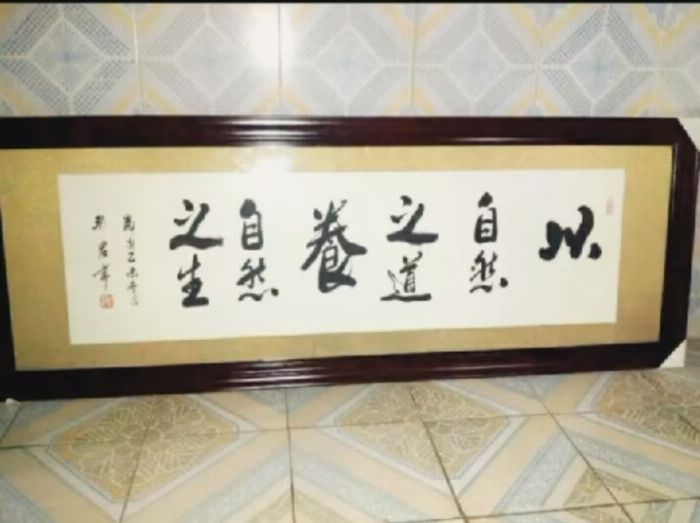 以
自然
之道
養
自然
之生